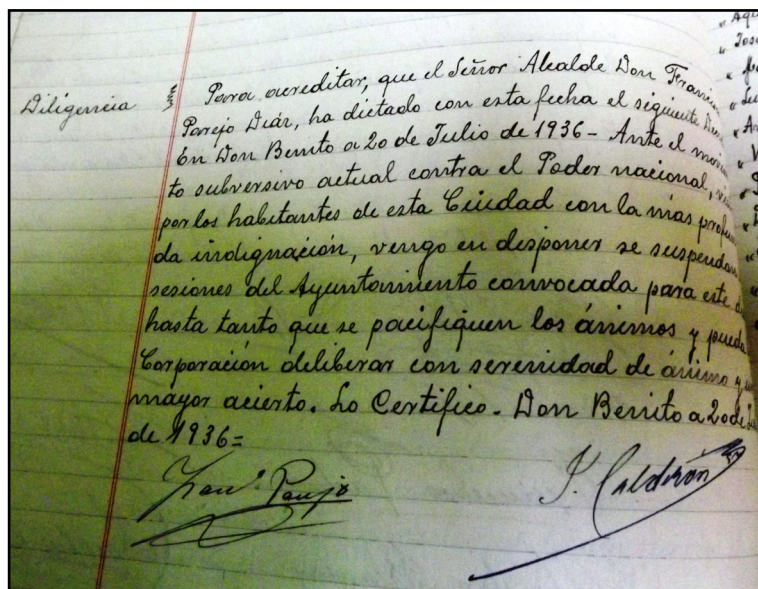 Diligencia
Para acreditar, que el Señor Alcalde Don
Parejo Diár, ha dictado con esta fecha el siguiente
En Don Benito a 20 de Julio de 1936 - Ante el
to subversivo actual contra el Poder nacional,
por los habitantes de esta Ciudad con la mas profun
da indignación, vengo en disponer se suspendan
sesiones del Ayuntamiento convocada para este
hasta tanto que se pacifiquen los ánimos y pueda
Corporación deliberar con serenidad de ánimo y
mayor acierto. Lo Certifico. Don Benito a 20 de
de 1936 =
Franº Parejo
F. Calderón